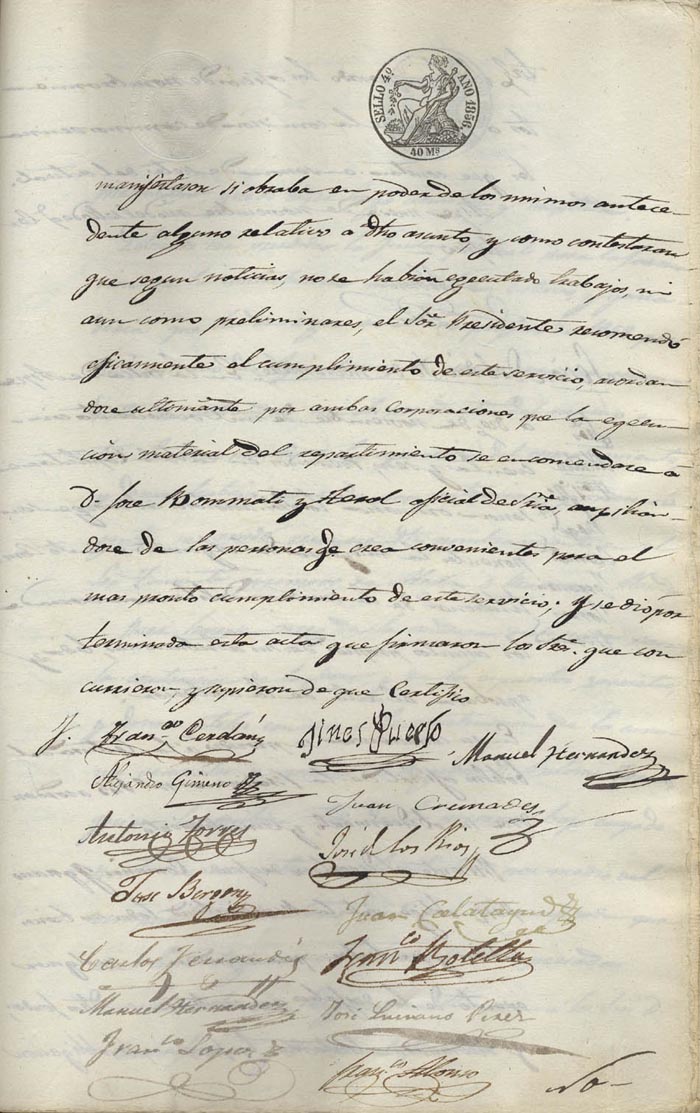 SELLO 4º AÑO 1856.
40 Ms
manifestaron si obraba en poder de los mismos antece-
dente alguno relativo a dho asunto, y como contestaran
que segun noticias, no se habian egecutado trabajos, ni
aun como preliminares, el Sor Presidente recomendó
eficazmente el cumplimiento de este servicio, acordan
dose ultimante por ambas corporaciones que la egecu-
cion material del repartimiento se encomendase á
Dn Jose y oficial de Sria, ausilian-
dose de las personas qe crea convenientes para el
mas pronto cumplimiento de este servicio; y se dió por
terminada esta acta que firmaron los Sres. que con
currieron, y supieron de que Certifico
Franco Cerdán
Gines Puerto
Manuel Hernandez
Alejandro Gimeno
Juan Cremades
Antonio Torres
José de los Rios
Jose
Juan Calatayud
Carlos
Franco Botella
Manuel Hernandez
José Luciano Perez
Franco Lopez
Franco Alfonso